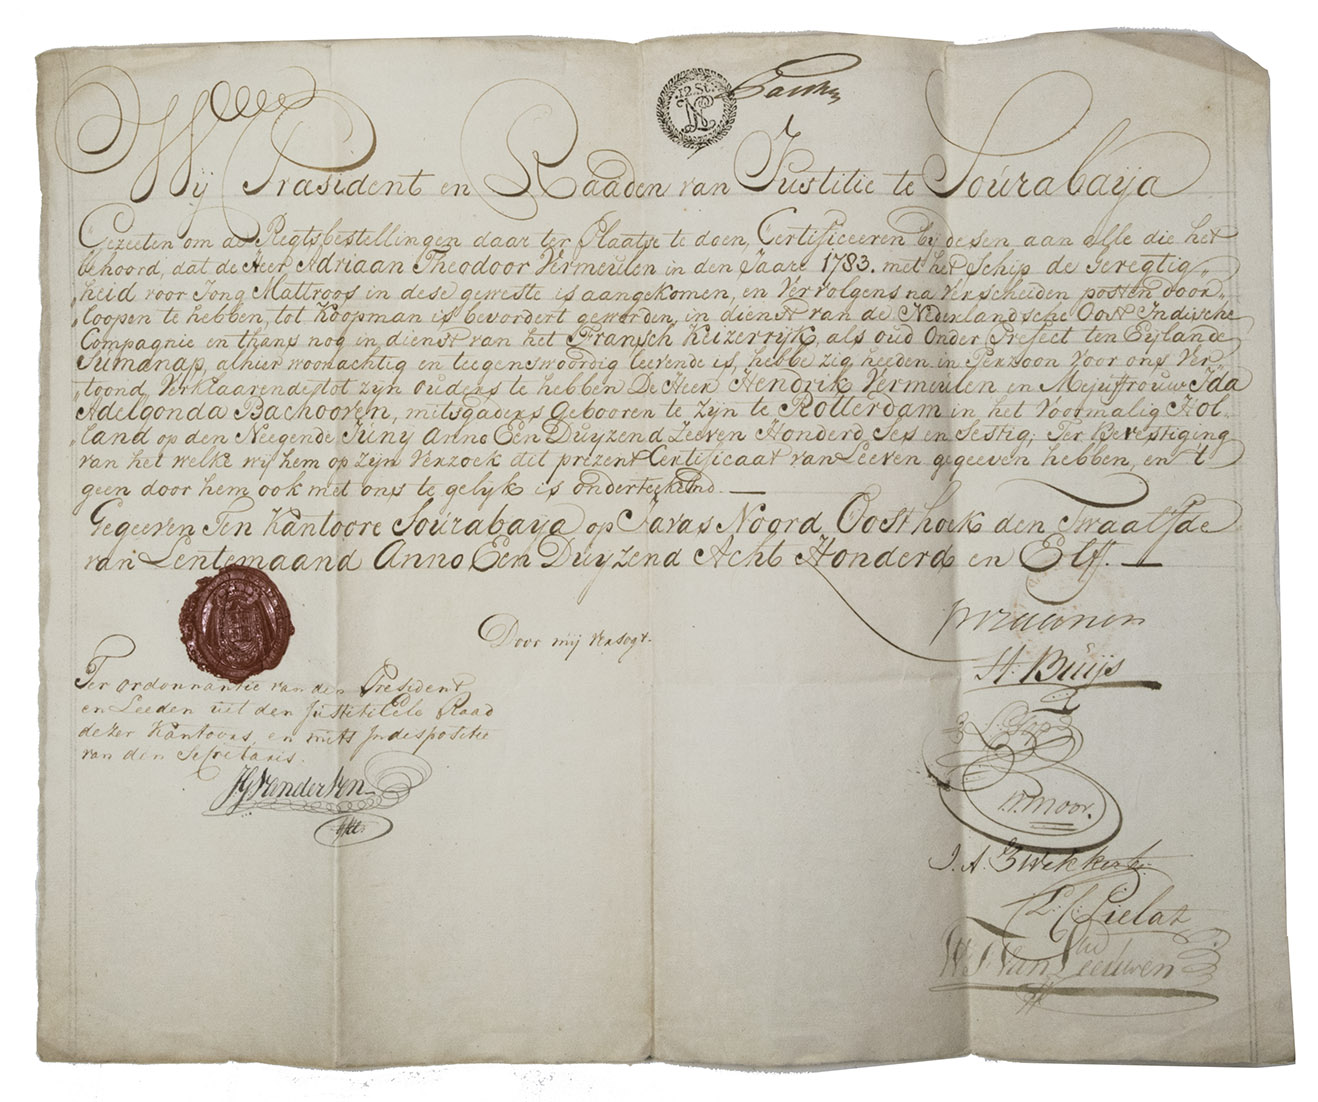 12 St.
LN
Wij Præsident en Raaden van Justitie te Sourabaya
Gezeeten om de Regtsbestellingen daar ter plaatse te doen, Certificeeren bij desen aan alle die het
behoord, dat de Heer Adriaan Theodoor Vermeulen in den Jaare 1783. met het Schip de geregtig„
„heid voor Jong Mattroos in dese geweste is aangekomen, en vervolgens na verscheiden posten door„
„loopen te hebben, tot Koopman is bevordert geworden, in dienst van de Nederlandsche Oost Indische
Compagnie en thans nog in dienst van het Fransch Keizerrijk, als oud Onder Prefect ten Eylande
Sumanap, alhier woonachtig en teegenswoordig leevende is, hebbe zig heeden in Perzoon voor ons ver„
„toond, verklaarende tot zijn ouders te hebben De Heer Hendrik Vermeulen en Mejuffrouw Ida
Adelgonda Bachooven, mitsgaders gebooren te zijn te Rotterdam in het voormalig Hol„
„land op den Neegende Junij Anno Een Duyzend Zeeven Honderd Ses en Sestig; Ter Bevestiging
van het welke wij hem op zijn verzoek dit prezent Certificaat van Leeven gegeeven hebben, en 't
geen door hem ook met ons te gelyk is onderteekend. —
Gegeeven Ten Kantoore Sourabaya op Javas Noord Oosthoek den Twaalfde
van Lentemaand Anno Een Duyzend Acht Honderd en Elf. —
Door mij versogt.
H. Buijs
Ter ordonnantie van den President
en Leeden uit den Justitieele Raad
dezer Kantoore, en mits Indespositie
van den Secretaris.
N. Moor.
J. A. Zwekkert
Pielat
W. J. Van Leeuwen